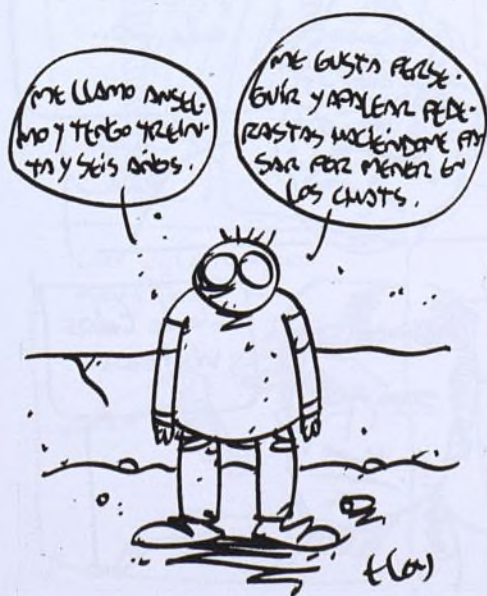 ME LLAMO ANSEL-
MO Y TENGO TREIN-
TA Y SEIS AÑOS.
ME GUSTA PERSE-
GUIR Y APALEAR PEDE-
RASTAS HACIÉNDOME PA
SAR POR MENER EN
LOS CHATS.